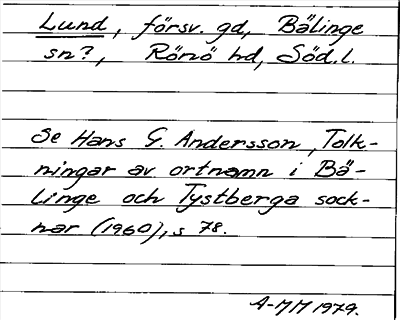 Lund, försv. gd, Bälinge
sn?, Rönö hd, Söd.l.
Se Hans G. Andersson, Tolk-
ningar av ortnamn i Bä-
linge och Tystberga sock-
nar (1960), s 78.
A-MM 1979.